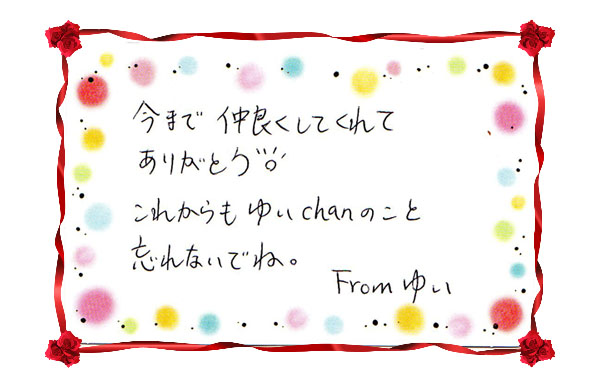 今まで 仲良くしてくれて
ありがとう
これからも ゆいchanのこと
忘れないでね。
From ゆい